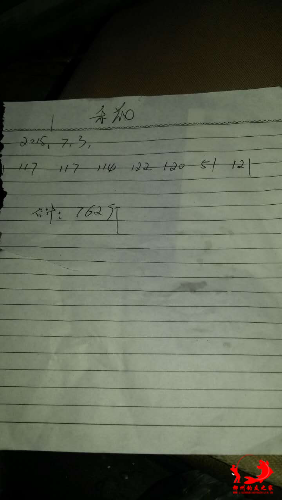 2015、7.3,
117 117 114 122 120 51 121
合计: 762斤